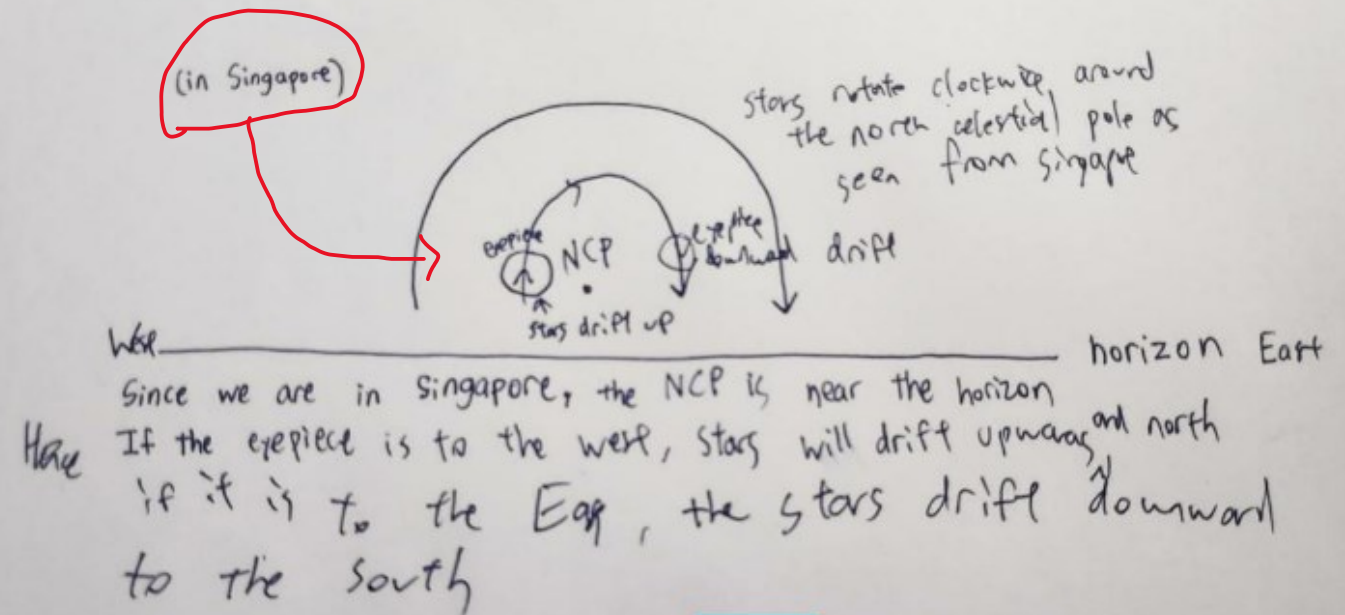 (in Singapore)
stars rotate clockwise around
the north celestial pole as
seen from singapre
eyepiece
NCP
eyepiece
downward drift
stars drift up
West
horizon East
Since we are in singapore, the NCP is near the horizon
If the eyepiece is to the west, stars will drift upwards and north
if it is to the Eas, the stars drift downward
to the south